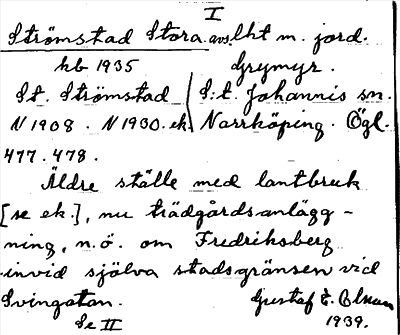 I
Strömstad Stora. avs. lht m. jord.
kb 1935 Grymyr.
St. Strömstad S:t. Johannis sn.
N 1908. N 1930. ek. Norrköping. Ögl.
477. 478.
Äldre ställe med lantbruk
[se ek.], nu trädgårdsanlägg-
ning, n.ö. om Fredriksberg
invid själva stadsgränsen vid
Svingatan. Gustaf E. Olsson
Se II 1939.